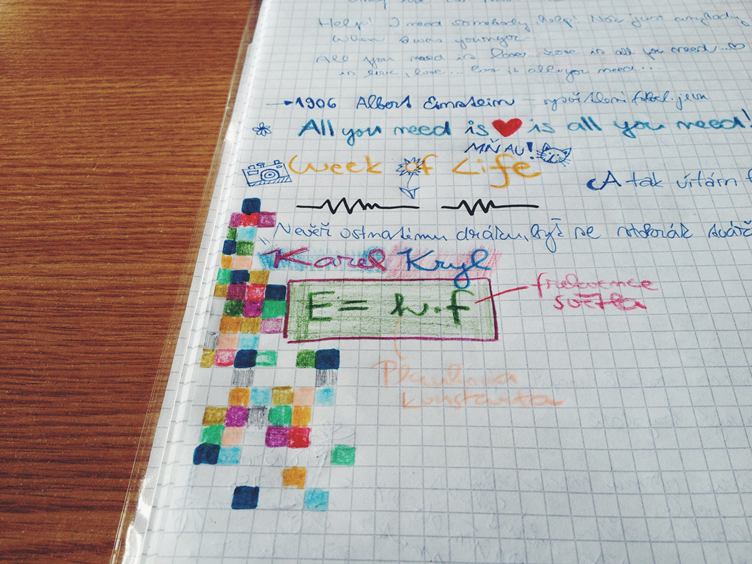 Help! I need somebody help! Not just anybody
When I was younger
All you need is love love is all you need
is love, love... love is all you need..
→1906 Albert Einstein –
All you need is ❤ is all you need!
MŇAU!
Week of Life
A tak vítám
"Nevěř ostnatému drátu, byť se
Karel Kryl
E = h·f
frekvence
světla
Planckova
konstanta